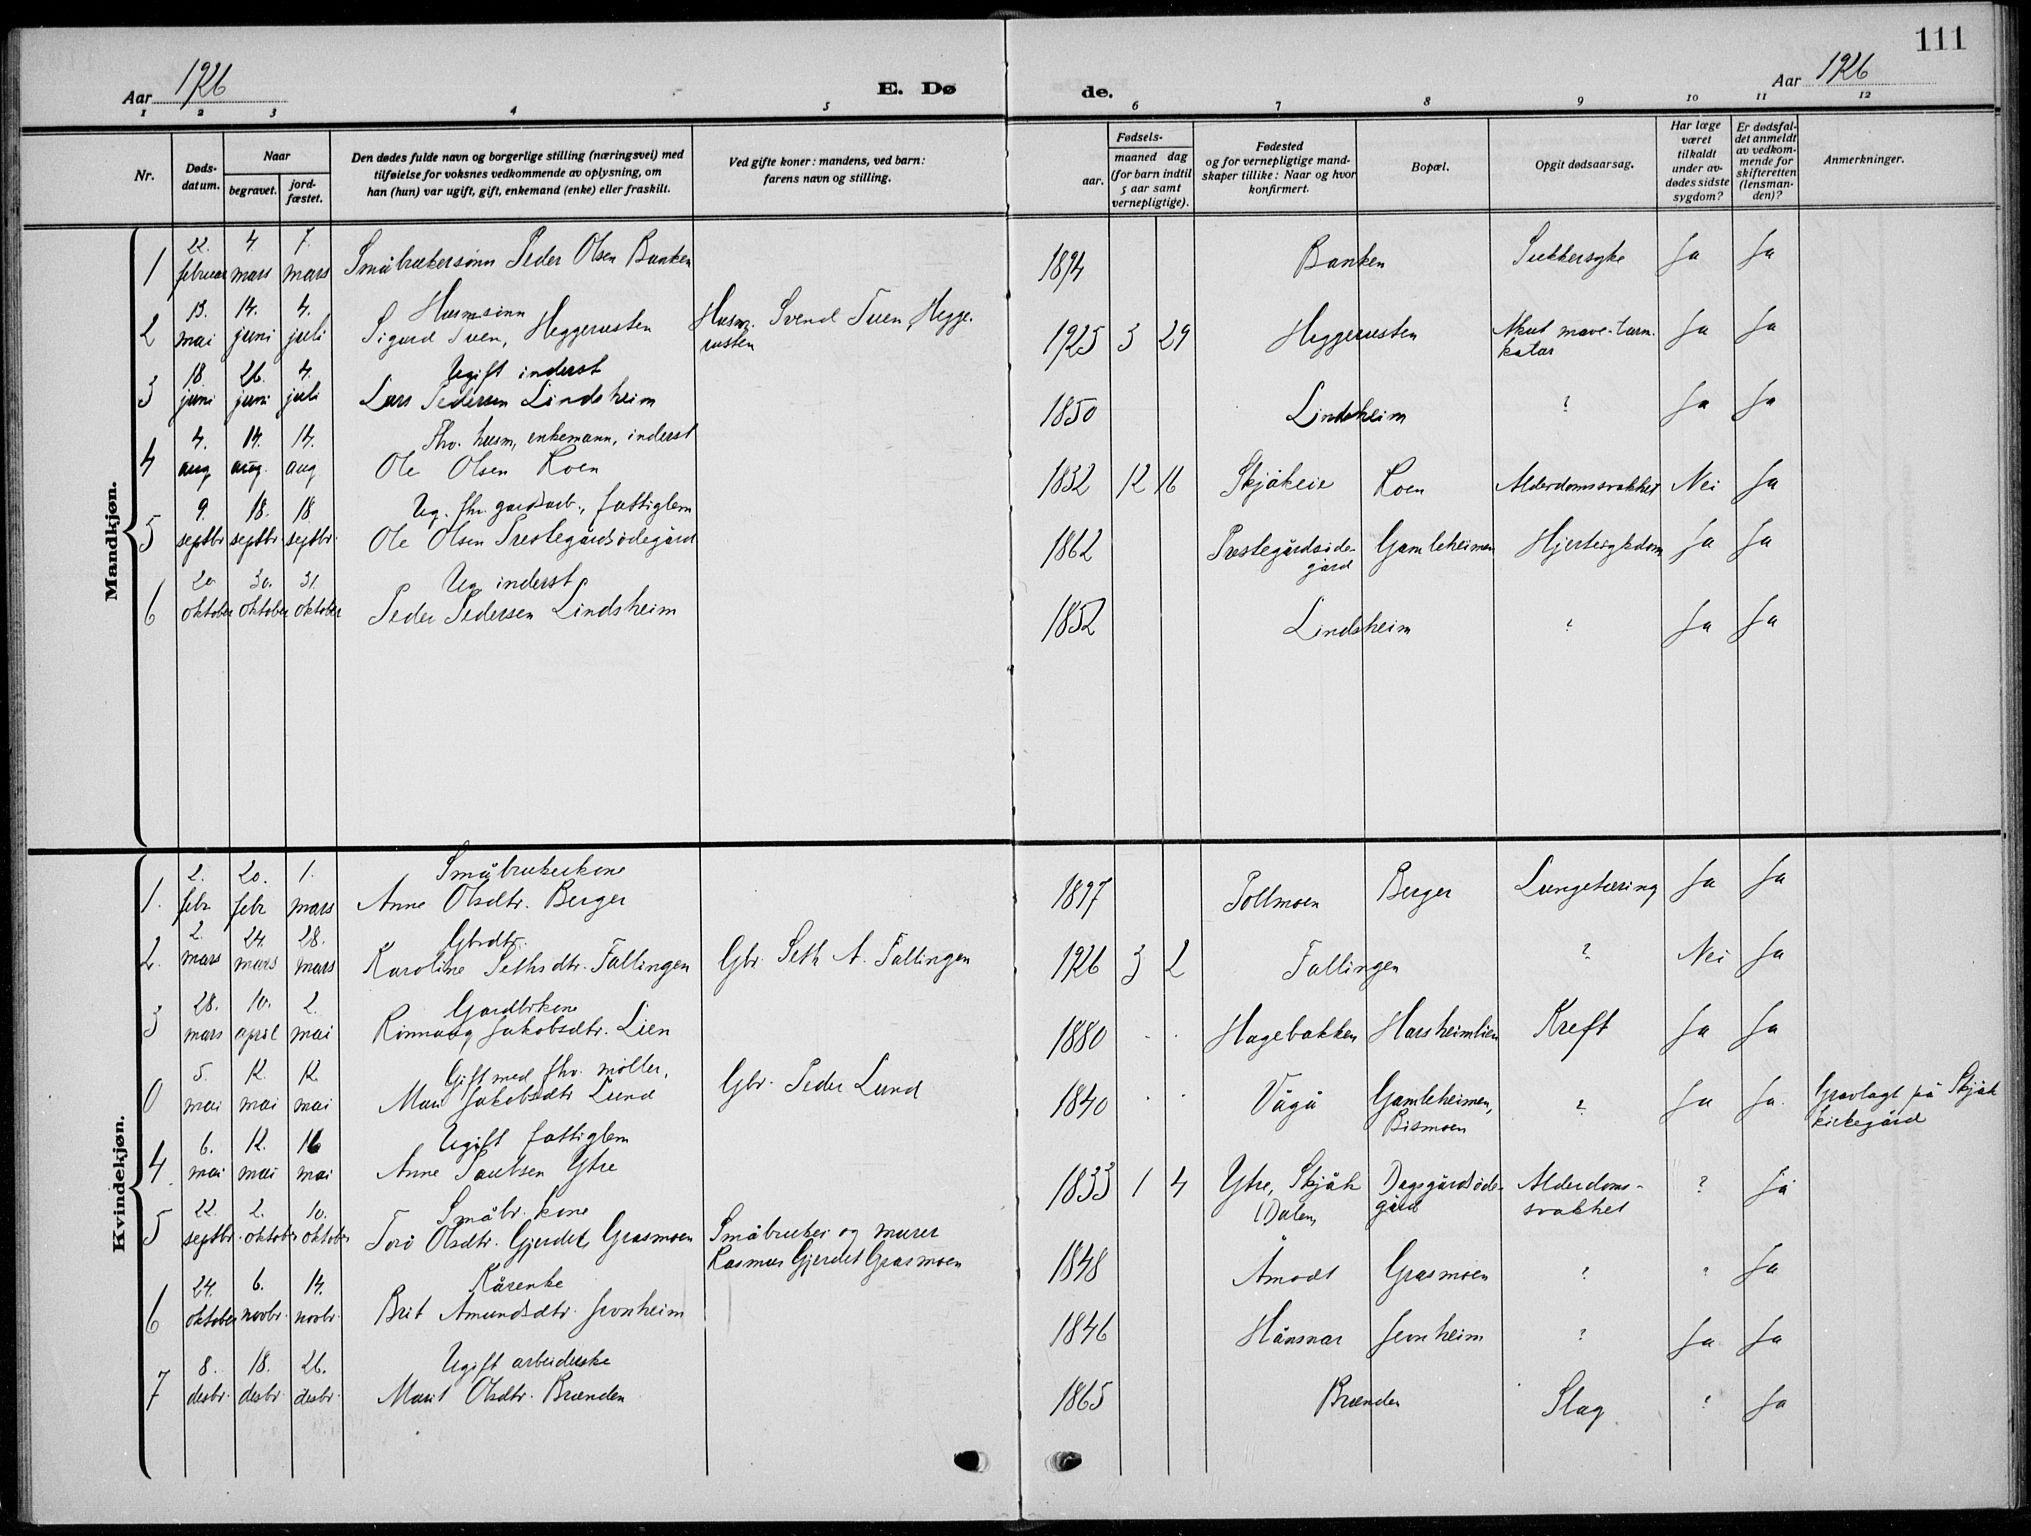 111
Aar 1926
E. Dø
de.
Aar 1926
1 2 3 4 5 6 7 8 9 10 11 12
Nr.
Døds-
datum.
Naar
begravet.
jord-
fæstet.
Den dødes fulde navn og borgerlige stilling (næringsvei) med
tilføielse for voksnes vedkommende av oplysning, om
han (hun) var ugift, gift, enkemand (enke) eller fraskilt.
Ved gifte koner: mandens, ved barn:
farens navn og stilling.
Fødsels-
aar.
maaned dag
(for barn indtil
5 aar samt
vernepligtige).
Fødested
og for vernepligtige mand-
skaper tillike: Naar og hvor
konfirmert.
Bopæl.
Opgit dødsaarsag.
Har læge
været
tilkaldt
under av-
dødes sidste
sygdom?
Er dødsfal-
det anmeldt
av vedkom-
mende for
skifteretten
(lensman-
den)?
Anmerkninger.
Mandkjøn.
22. 4 7.
1 februar mars mars Småbrukersønn Peder Olsen Banken 1894 Banken Sukkersyke Ja Ja
13. 14. 4. Husmsønn
2 mai juni juli Sigurd Tuen, Heggerusten Husm. Svend Tuen, Hegge- 1925 3 29 Heggerusten Akut mave-tarm- Ja Ja
rusten katar
18 26. 4. Ugift inderst
3 juni juni juli Lars Pedersen Lindsheim 1850 Lindsheim ? Ja Ja
4. 14. 14. Fhv. husm, enkemann, inderst
4 aug aug. aug Ole Olsen Koen 1832 12 16 Skjåkeie Koen Alderdomssvakhet Nei Ja
9. 18. 18 Ug. fhv. gardsarb., fattiglem
5 septbr septbr. septbr. Ole Olsen Prestegårdsødegård 1862 Prestegårdsøde- Gamleheimen Hjertesykdom Ja Ja
gård
20 30. 31. Ug inderst
6 oktober oktober oktober Peder Pedersen Lindsheim 1852 Lindsheim ? Ja Ja
Kvindekjøn.
2. 20. 1. Småbrukerkone
1. febr febr mars Anne Olsdtr. Berger 1897 Pollmoen Berger Lungetæring Ja Ja
2. 24. 28. Gbrdtr.
2. mars mars mars Karoline Sethsdtr. Fallingen Gbr. Seth A. Fallingen 1926 3 2 Fallingen ? Nei Ja
28. 10. 2. Gardbrkone
3 mars april mai Rønnaug Jakobsdtr. Lien 1880 . . Hagebakken Harsheimlien Kreft Ja Ja
5. 12. 12. Gift med fhv. møller,
0 mai mai mai Mari Jakobsdtr Lund Gbr. Peder Lund 1840 . . Vågå Gamleheimen, ? Ja Ja. Gravlagt på Skjåk
Bismoen kirkegård
6. 12. 16 Ugift fattiglem
4. mai mai mai Anne Paulsen Ytre 1833 1 4 Ytre, Skjåk Dagsgårdsøde- Alderdoms- ? Ja
(Dalen) gård svakhet
22. 2. 10. Småbr. kone
5 septbr. oktober oktober Torø Olsdtr. Gjerdet, Grasmoen Småbruker og murer
Rasmus Gjerdet Grasmoen 1848 Åmodt Grasmoen ? ? Ja
24. 6. 14. Kårenke
6 oktober novbr. novbr. Brit Amundsdtr. Jevnheim 1846 Hånsnar Jevnheim ? Ja Ja
8. 18. 26. Ugift arbeiderske
7 desbr. desbr. desbr. Marit Olsdtr. Brænden 1865 Brænden Slag ? Ja